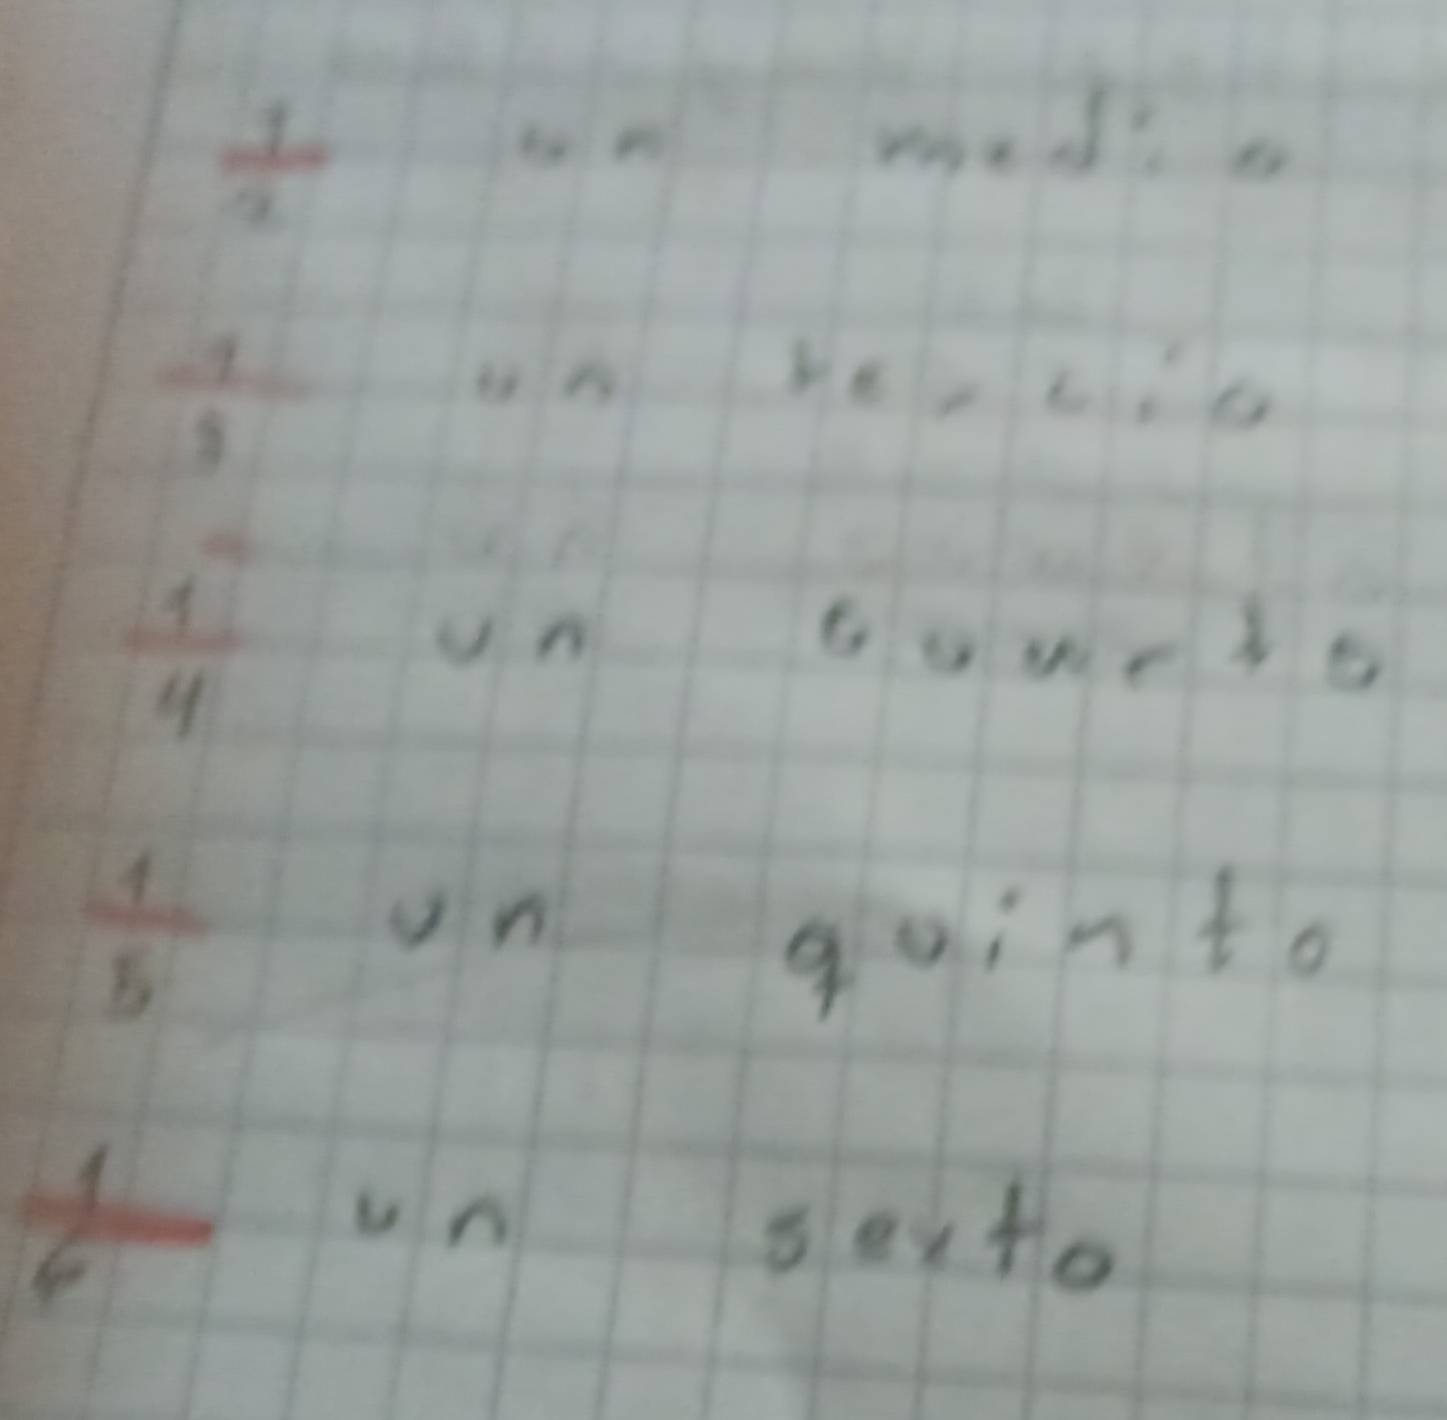 1/2 un medio
1/3 un tercio
1/4 un cuarto
1/5 un quinto
1/6 un sexto